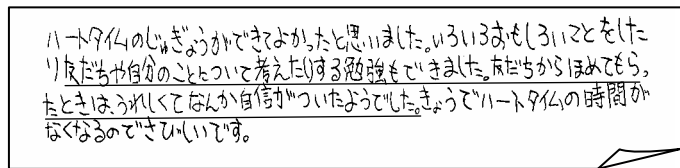 ハートタイムのじゅぎょうができてよかったと思いました。いろいろおもしろいことをした
り友だちや自分のことについて考えたりする勉強もできました。友だちからほめてもらっ
たときは、うれしくてなんか自信がついたようでした。きょうでハートタイムの時間が
なくなるのでさびしいです。